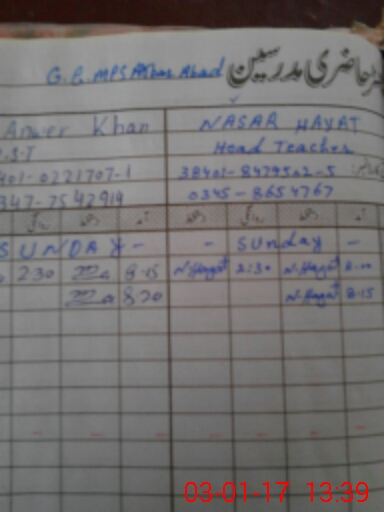 حاضری مدرسین
G.P.MPS Akbar Abad
Anwer Khan NASAR HAYAT
P.S.T Head Teacher
401-0221707-1 38401-8479502-5
347-7542919 0345-8654767
SUNDAY - - Sunday -
2:30 8-15 N.Hayat 2:30 N.Hayat
8 20 N.Hayat 8-15
03-01-17 13:39